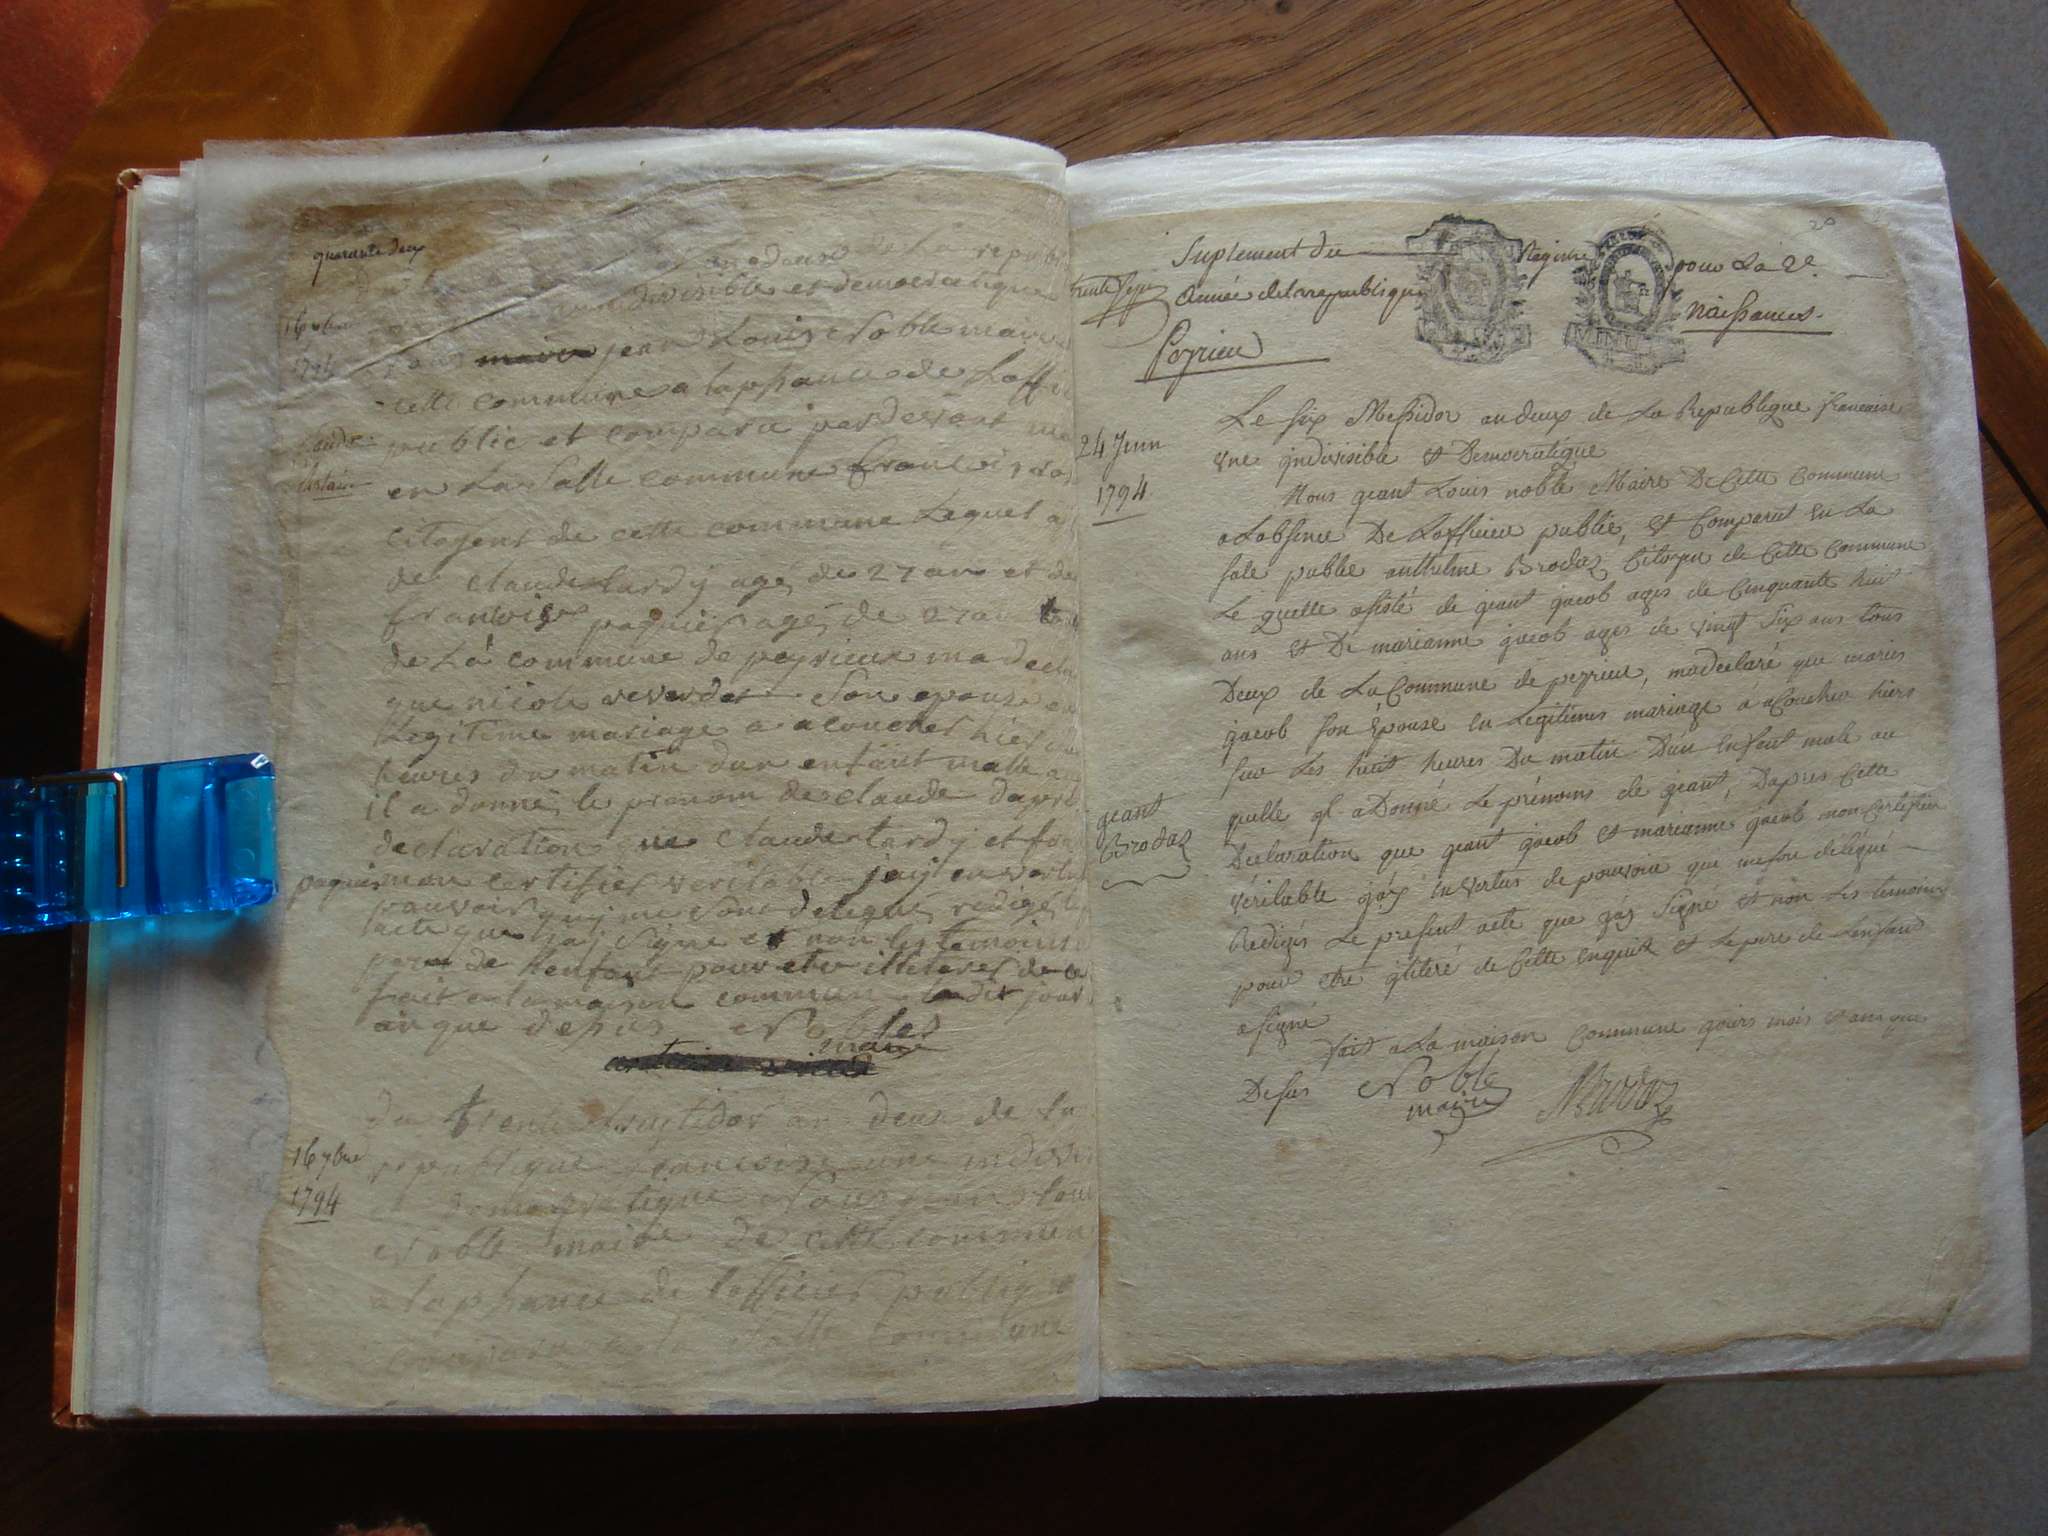 quarante deux
an deux de republ
indivisible et democratique
16 7bre
1794
maire jean Louis Noble maire
cette commune a laphance de Loffi
public et comparu perdevant
en La Salle commune francois
citoyent de cette commune Lequel
de claude tardy agé de 27 an et de
francois paquier agé de 27 an
de La commune de peyrieux ma decla
que nicole reverdet Son epouse en
Legitime mariage a acoucher hier
heures du matin dun enfant malle au
il a donné le pronom de claude dapre
declaration que claude tardy et fra
paquier mon certifier veritable jaij en vertu
pouvoir quij me sont delegué redigé le
acte que jaij Signe et non les temoins
pere de Henfant pour etre illiteres de ce
fait a la maison commune le dit jour
an que desus Nobles
maire
du trente fructidor an deux de la
16 7bre
1794
republique francoise une indivi
democratique Nous jean Loui
Noble maire de cette commune
a laphance de lofficier publique
comparu a la Salle commune
20
Suplement du Registre pour La 2e
trente Sept
Année de la republique
Naissances.
MINUTE
Peyrieu
Le Six Messidor an deux de La Republique francaise
Vne indivisible et Democratique
24 Juin
1794
Nous geant Louis noble Maire De Cette Commune
a Labsence De Lofficier publie, et Comparut en La
sale publie anthelme Brodaz Citoyen de Cette Commune
Le quelle asisté de geant jacob ages de Cinquante huit
ans et De marianne jacob ages de vingt Six ans tous
Deux de La Commune de peyrieu, madeclaré que maries
jacob son Epouse en Legitimes mariage a acoucher hiers
sur Les huit heures Du matin Dun Enfent male au
quelle il a Donné Le prénoms de geant, Dapres Cette
geant
Brodaz
Declaration que geant jacob et marianne jacob mon Certifier
véritable jáy en vertus de pouvoir que me son délégué
Redigés Le present acte que jáy Signe et non Les temoins
pour etre iliteré de Cette enquir et Le pere de Lenfant
a signé
fait a La maison Commune jours mois et ans que
Desus Noble
maire
ABrodaz